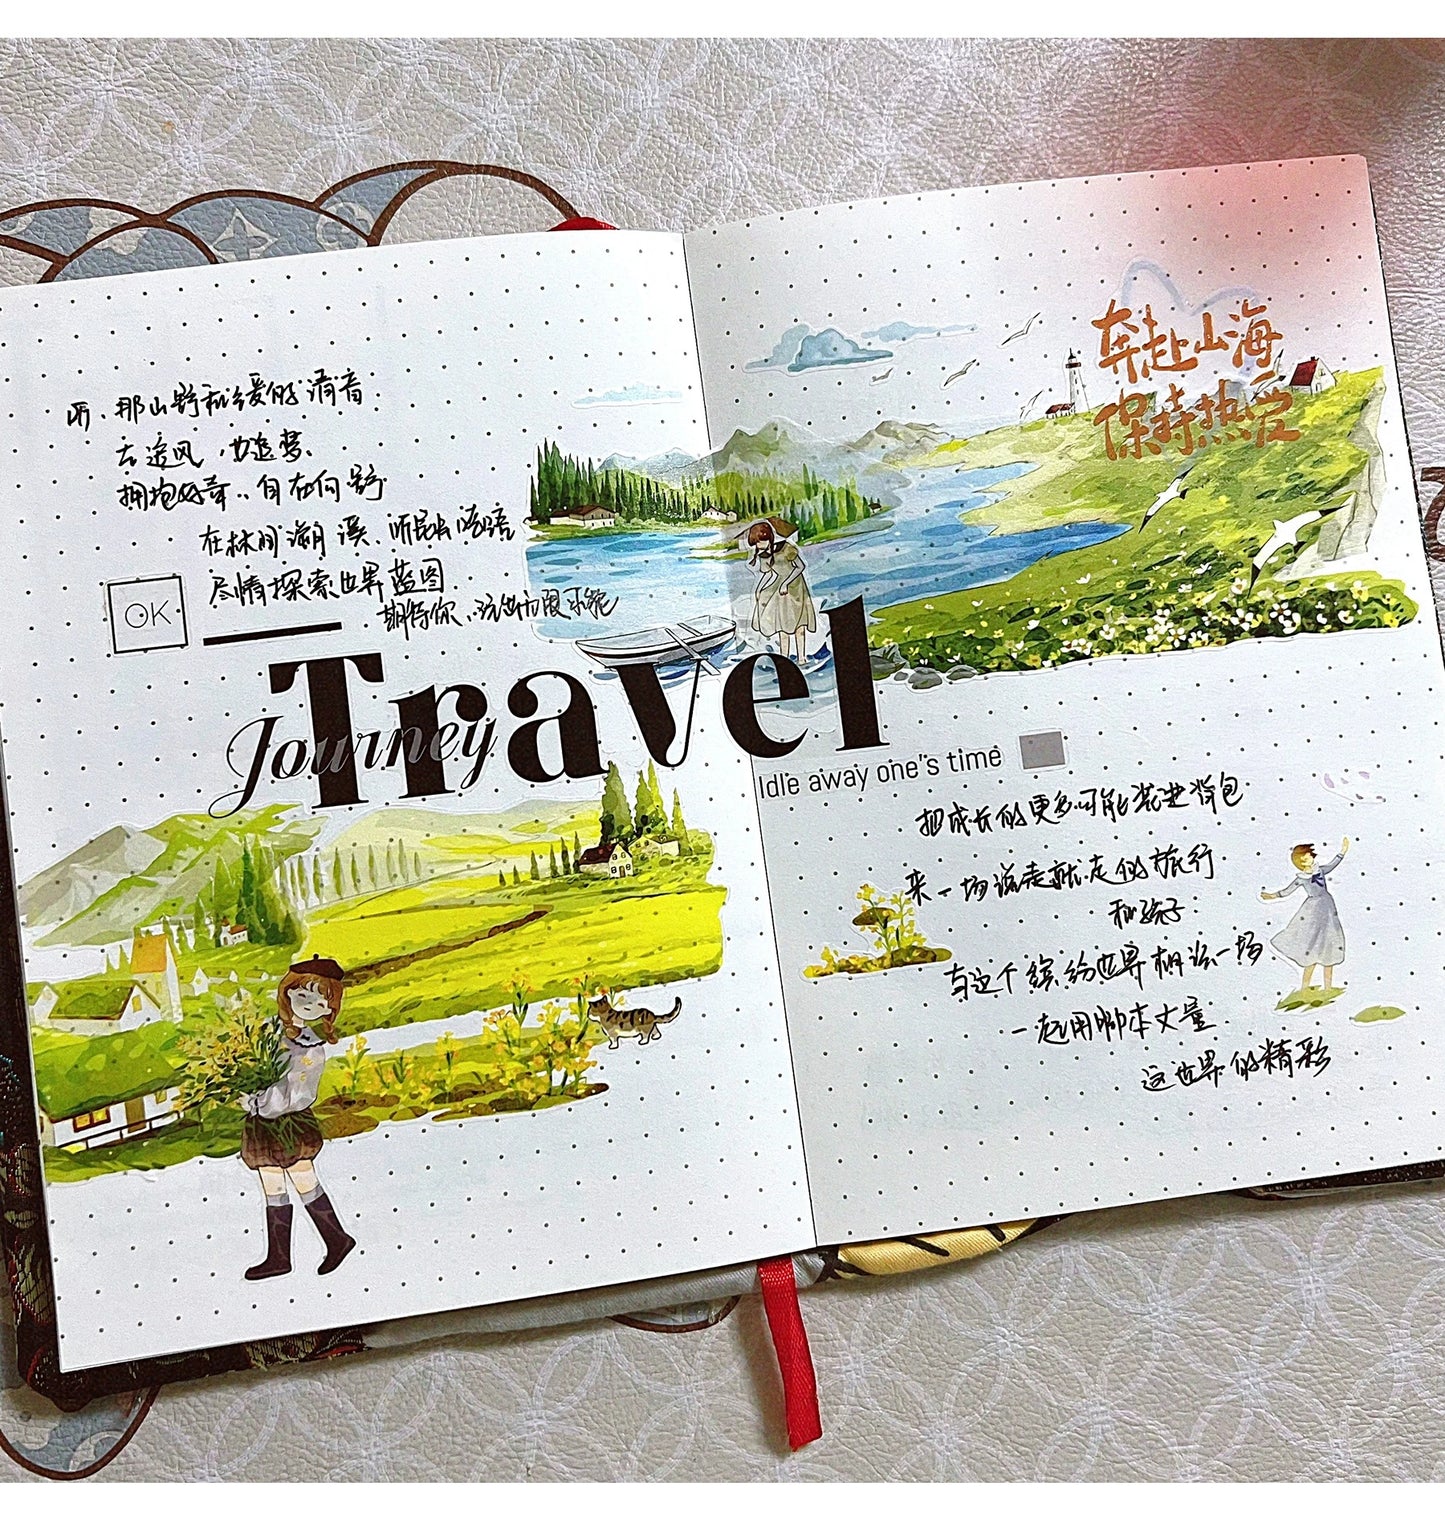 听、那山野和缓的清音
去追风,去追梦
拥抱好奇、自在向野
在林间溯溪、听昆虫
尽情探索世界蓝图
期待你、玩出无限可能
OK
Travel
Journey
Idle away one's time
奔赴山海
保持热爱
把成长的更多可能装进背包
来一场说走就走的旅行
和孩子
与这个缤纷世界相说一场
一起用脚本丈量
这世界的精彩